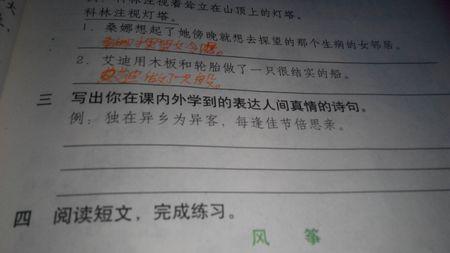 科林注视着耸立在山顶上的灯塔。
科林注视灯塔。
1．桑娜想起了她傍晚就想去探望的那个生病的女邻居。
2．艾迪用木板和轮胎做了一只很结实的船。
艾迪做了一只船。
三 写出你在课内外学到的表达人间真情的诗句。
例：独在异乡为异客，每逢佳节倍思亲。
四 阅读短文，完成练习。
风 筝